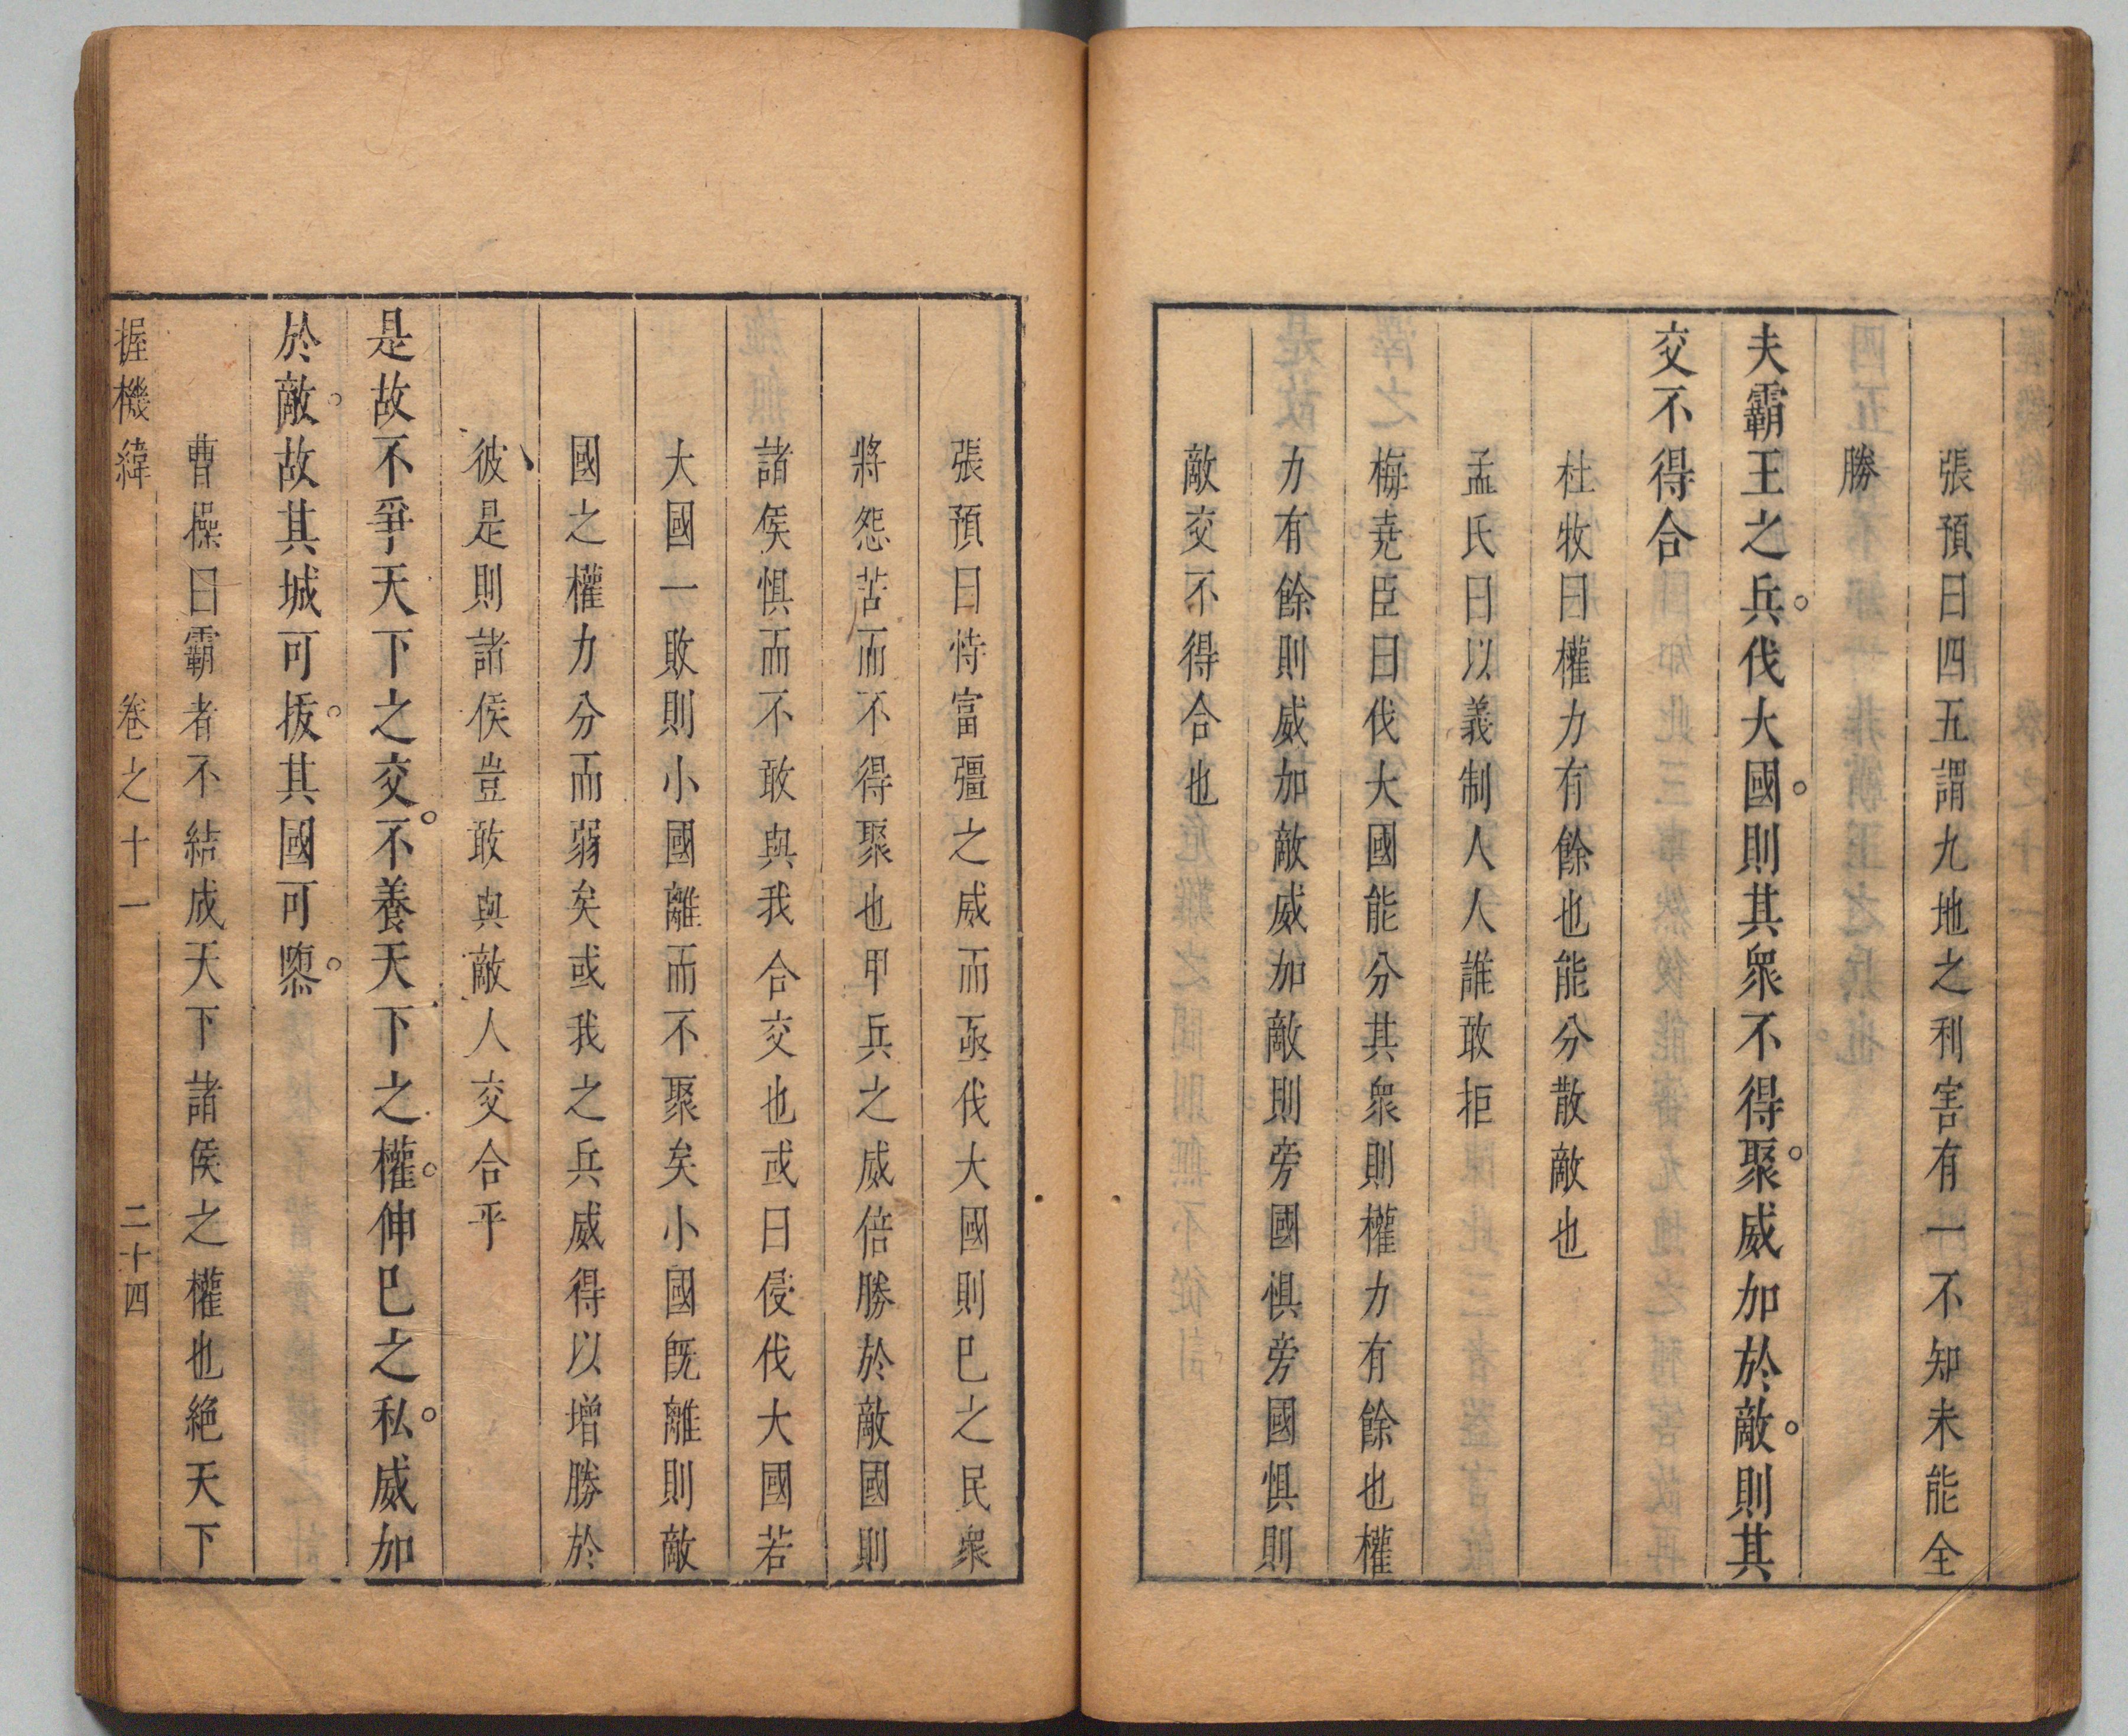 張預曰四五謂九地之利害有一不知未能全
勝
夫霸王之兵。伐大國。則其衆不得聚。威加於敵。則其
交不得合
杜牧曰權力有餘也能分散敵也
孟氏曰以義制人人誰敢拒
梅堯臣曰伐大國能分其衆則權力有餘也權
力有餘則威加敵威加敵則旁國惧旁國惧則
敵交不得合也
張預曰恃富彊之威而亟伐大國則巳之民衆
將怨苦而不得聚也甲兵之威倍勝於敵國則
諸侯惧而不敢與我合交也或曰侵伐大國若
大國一敗則小國離而不聚矣小國旣離則敵
國之權力分而弱矣或我之兵威得以增勝於
彼是則諸侯豈敢與敵人交合乎
是故不爭天下之交。不養天下之權。伸巳之私。威加
於敵。故其城可拔。其國可隳。
曹操曰霸者不結成天下諸侯之權也絶天下
握機緯 卷之十一 二十四